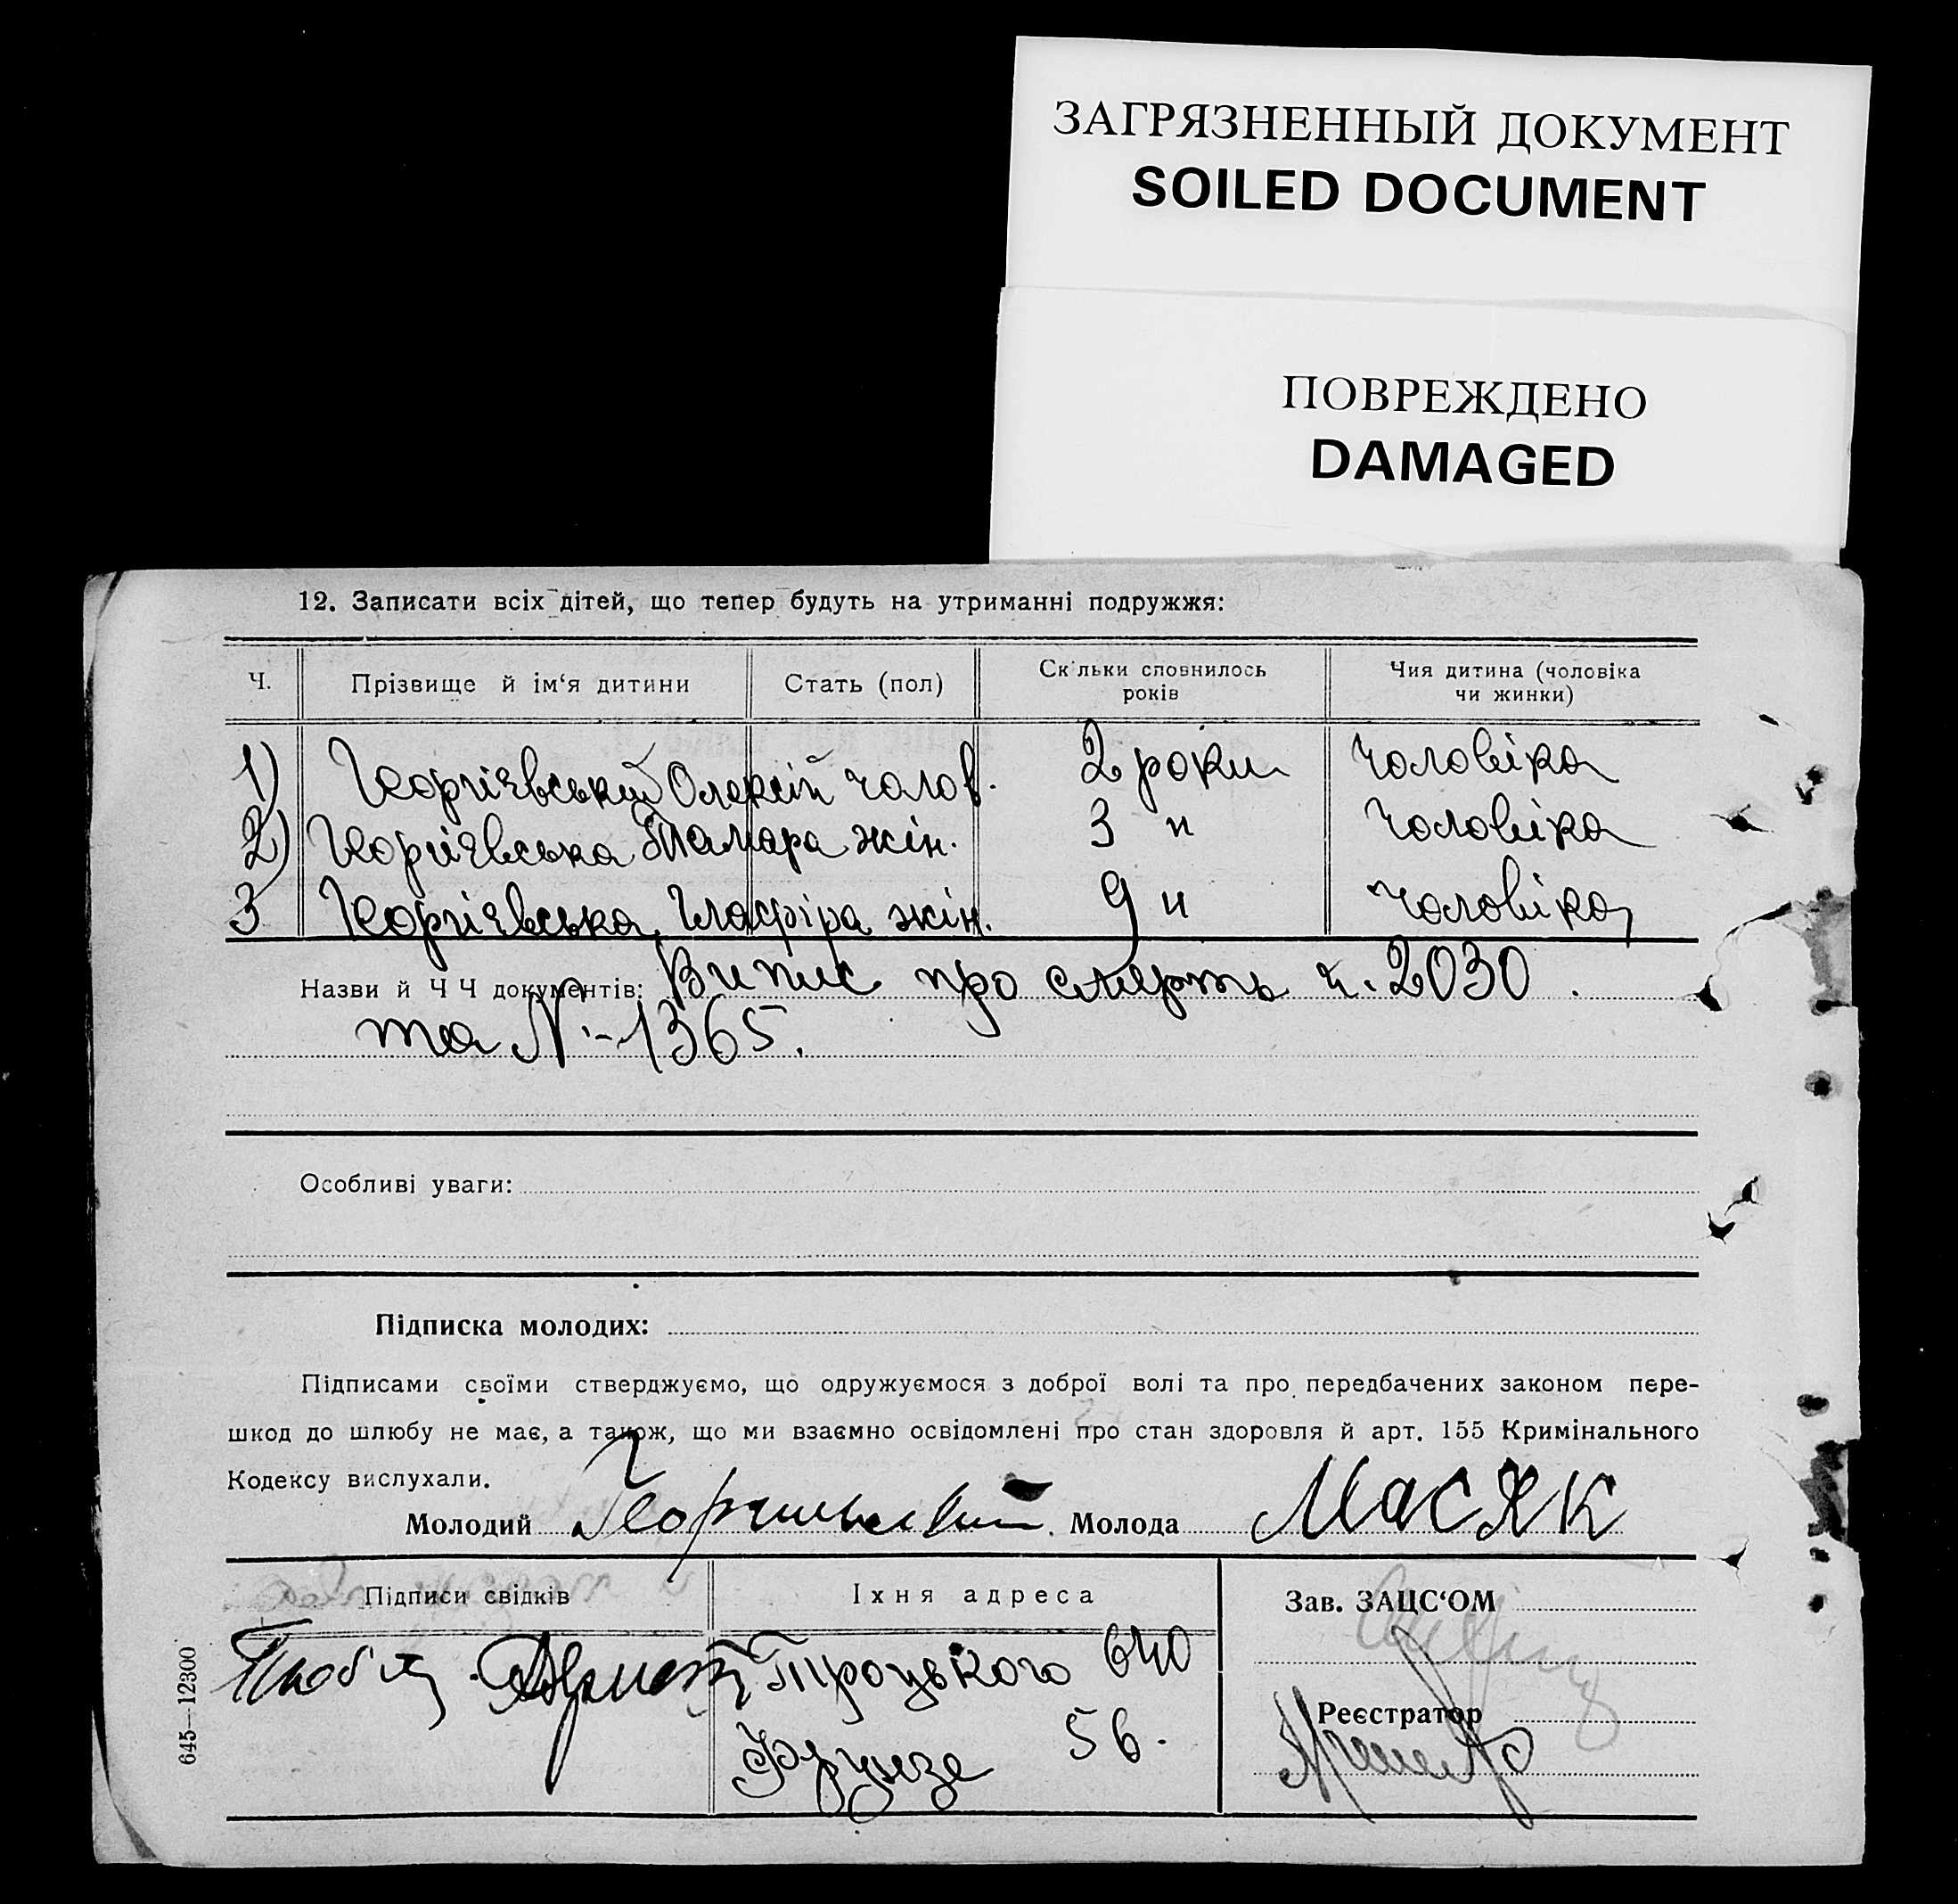 ЗАГРЯЗНЕННЫЙ ДОКУМЕНТ
SOILED DOCUMENT
ПОВРЕЖДЕНО
DAMAGED
12. Записати всіх дітей, що тепер будуть на утриманні подружжя:
Ч. Прізвище й ім‘я дитини Стать (пол) Скільки сповнилось років Чия дитина (чоловіка чи жинки)
1) Олексій чолов. 2 роки чоловіка
2) Тамара жін. 3 " чоловіка
3 Глафіра жін. 9 " чоловіка
Назви й Ч Ч документів: Випис про смерть ч. 2030.
та № 1365.
Особливі уваги:
Підписка молодих:
Підписами своїми стверджуємо, що одружуємося з доброї волі та про передбачених законом пере-
шкод до шлюбу не має, а також, що ми взаємно освідомлені про стан здоровля й арт. 155 Кримінального
Кодексу вислухали.
Молодий Молода Масяк
Підписи свідків Їхня адреса Зав. ЗАЦС‘ОМ
Троцького 640
Реєстратор
Фрунзе 56.
645—12300